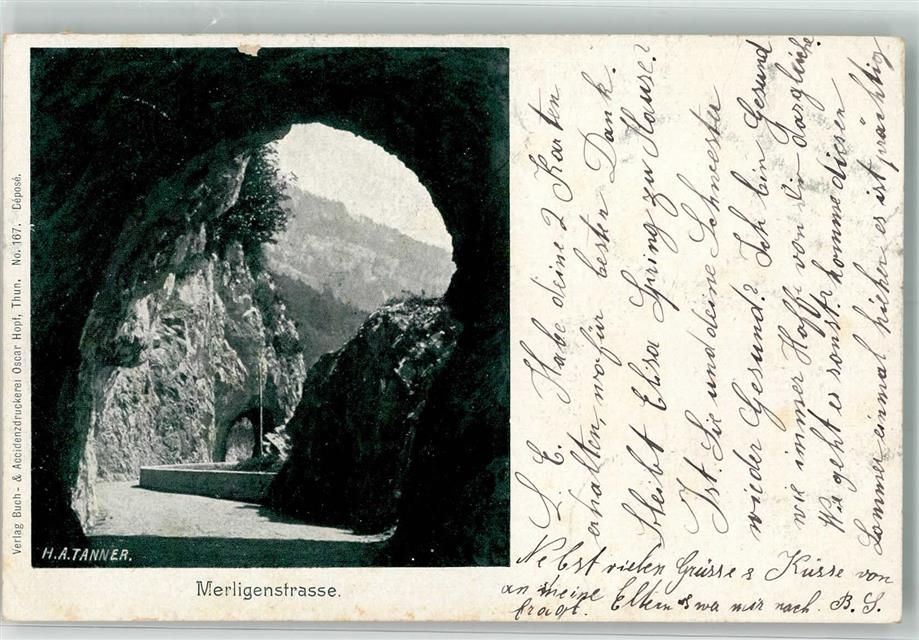 Verlag Buch- & Accidenzdruckerei Oscar Hopf, Thun. No. 167. Déposé.
H.A.TANNER.
Merligenstrasse.
L. E. Habe deine 2 Karten
erhalten, wofür beste Dank.
bleibt Elisa Spring zu Hause?
Ist Sie und deine Schwester
wieder Gesund? Ich bin Gesund
wie immer Hoffe von Dir dasgleiche.
Wie geht es sonst, komme diesen
Sommer einmal hieher es ist prächtig
Nebst vielen Grüsse & Küsse von
an meine Eltern wer mir nach. B. S.
fragt.